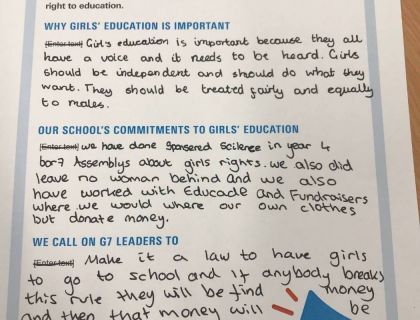 right to education.
WHY GIRLS' EDUCATION IS IMPORTANT
[Enter text] Girls education is important because they all
have a voice and it needs to be heard. Girls
should be independent and should do what they
want. They should be treated fairly and equally
to males.
OUR SCHOOL'S COMMITMENTS TO GIRLS' EDUCATION
[Enter text] we have done Sponsered Scilence in year 4
bor7 Assemblys about girls rights. we also did
leave no woman behind and we also
have worked with Educade and Fundraisers
where we would where our own clothes
but donate money.
WE CALL ON G7 LEADERS TO
[Enter text] Make it a law to have girls
to go to school and If anybody breaks
this rule they will be find money
and then that money will be